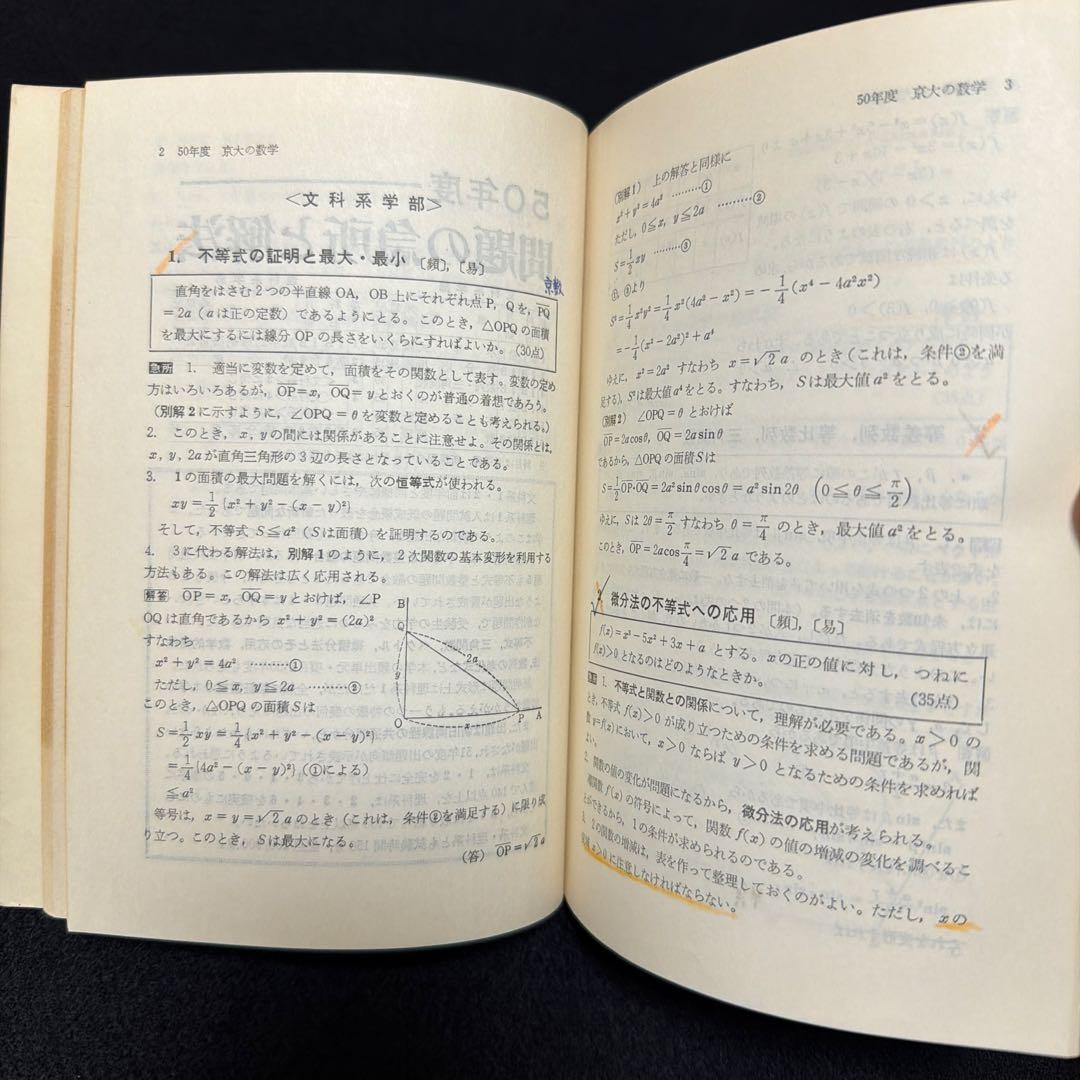 2 50年度 京大の数学
<文科系学部>
1. 不等式の証明と最大・最小 〔頻〕,〔易〕
京数
直角をはさむ2つの半直線 OA, OB 上にそれぞれ点 P, Q を, PQ
=2a ( a は正の定数) であるようにとる。このとき, △OPQ の面積
を最大にするには線分 OP の長さをいくらにすればよいか。(30点)
急所 1. 適当に変数を定めて, 面積をその関数として表す。変数の定め
方はいろいろあるが, OP=x, OQ=y とおくのが普通の着想であろう。
(別解2に示すように, ∠OPQ=θ を変数と定めることも考えられる。)
2. このとき, x, y の間には関係があることに注意せよ。その関係とは,
x, y, 2a が直角三角形の3辺の長さとなっていることである。
3. 1の面積の最大問題を解くには, 次の恒等式が使われる。
xy=1/2{x²+y²−(x−y)²}
そして, 不等式 S≦a² (S は面積) を証明するのである。
4. 3に代わる解法は, 別解1のように, 2次関数の基本変形を利用する
方法もある。この解法は広く応用される。
解答 OP=x, OQ=y とおけば, ∠P
OQ は直角であるから x²+y²=(2a)²
すなわち
x²+y²=4a² ………①
ただし, 0≦x, y≦2a ………②
このとき, △OPQ の面積 S は
S=1/2 xy=1/4{x²+y²−(x−y)²}
=1/4{4a²−(x−y)²} (①による)
≦a²
等号は, x=y=√2 a のとき (これは, 条件②を満足する) に限り成
り立つ。このとき, S は最大になる。
(答) OP=√2 a
B
Q
2a
y
O
x
P
A
50年度 京大の数学 3
(別解1) 上の解答と同様に
x²+y²=4a² ………①
ただし, 0≦x, y≦2a ………②
S=1/2 xy ………③
①, ③より
S²=1/4 x²y²=1/4 x²(4a²−x²)=−1/4(x⁴−4a²x²)
=−1/4(x²−2a²)²+a⁴
ゆえに, x²=2a² すなわち x=√2 a のとき (これは, 条件②を満
足する), S² は最大値 a⁴ をとる。すなわち, S は最大値 a² をとる。
(別解2) ∠OPQ=θ とおけば
OP=2acosθ, OQ=2asinθ
であるから, △OPQ の面積 S は
S=1/2 OP·OQ=2a²sinθcosθ=a²sin2θ (0≦θ≦π/2)
ゆえに, S は 2θ=π/2 すなわち θ=π/4 のとき, 最大値 a² をとる。
このとき, OP=2acosπ/4=√2 a である。
2. 微分法の不等式への応用 〔頻〕,〔易〕
f(x)=x³−5x²+3x+a とする。x の正の値に対し, つねに
f(x)>0 となるのはどのようなときか。 (35点)
急所 1. 不等式と関数との関係について, 理解が必要である。x>0 の
とき, 不等式 f(x)>0 が成り立つための条件を求める問題であるが, 関
数 y=f(x) において, x>0 ならば y>0 となるための条件を求めれば
よい。
2. 関数の値の変化が問題になるから, 微分法の応用が考えられる。
導関数 f′(x) の符号によって, 関数 f(x) の値の増減の変化を調べるこ
とができるから, 1の条件が求められるのである。
3. 2の関数の増減は, 表を作って整理しておくのがよい。ただし, x の
変域 x>0 に注意しなければならない。